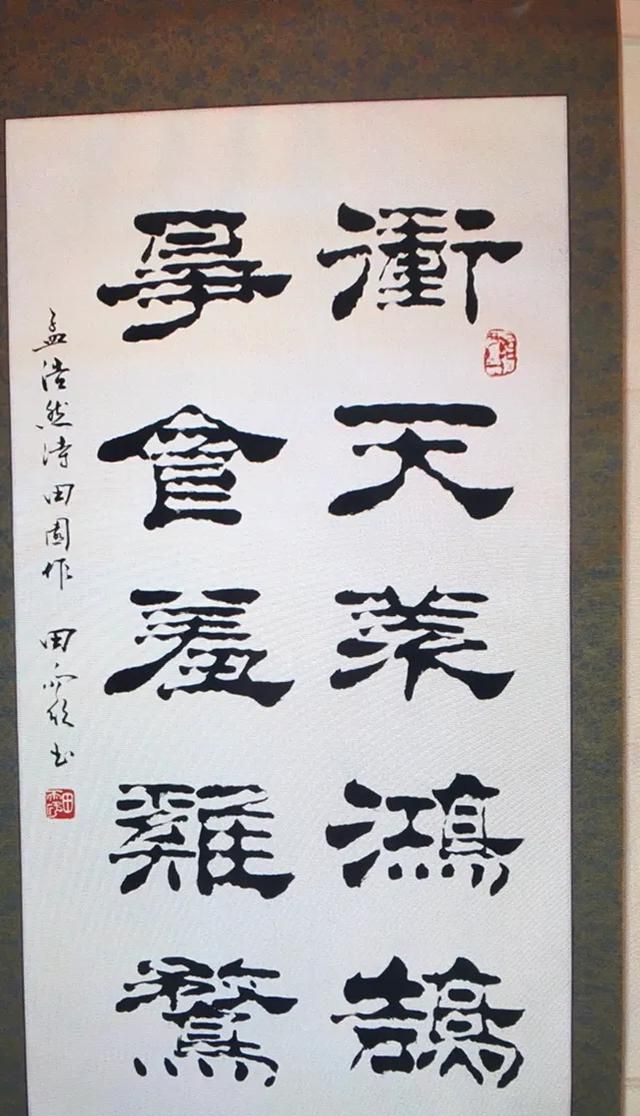 衝天羨鴻鵠
爭食羞雞鶩
孟浩然詩田園作 田 書